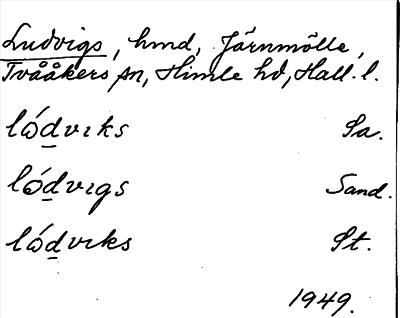 Ludvigs, hmd, Järnmölle,
Tvååkers sn, Himle hd, Hall. l.
lód̲vıks Sa.
lód̲vıgs Sand.
lód̲vıks St.
1949.